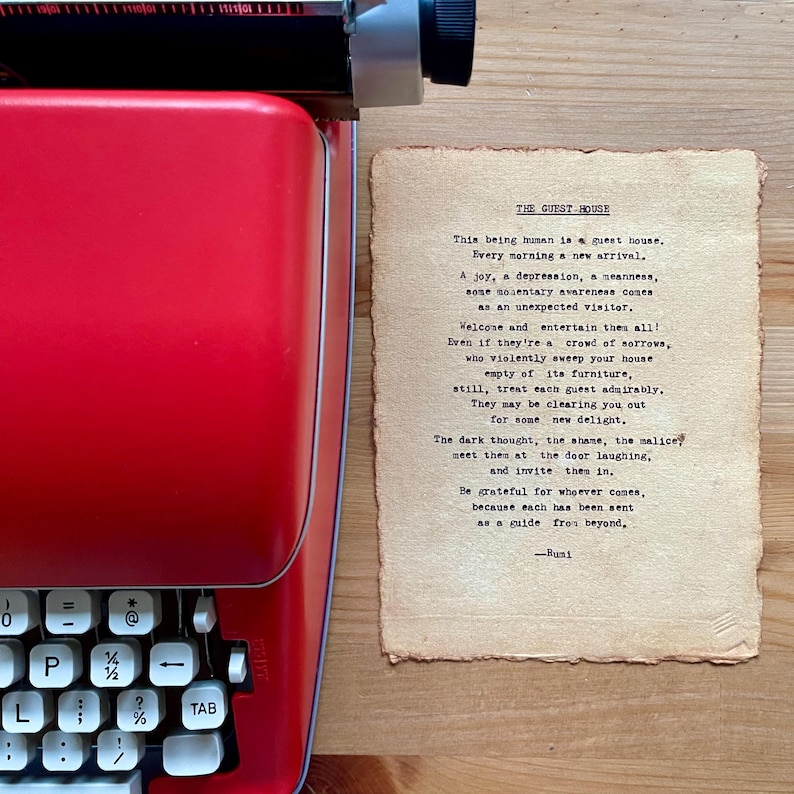 THE GUEST HOUSE
This being human is a guest house.
Every morning a new arrival.
A joy, a depression, a meanness,
some momentary awareness comes
as an unexpected visitor.
Welcome and entertain them all!
Even if they're a crowd of sorrows,
who violently sweep your house
empty of its furniture,
still, treat each guest admirably.
They may be clearing you out
for some new delight.
The dark thought, the shame, the malice,
meet them at the door laughing,
and invite them in.
Be grateful for whoever comes,
because each has been sent
as a guide from beyond.
—Rumi
) 0 = - * @
P ¼ ½ ←
L : ; ? % TAB